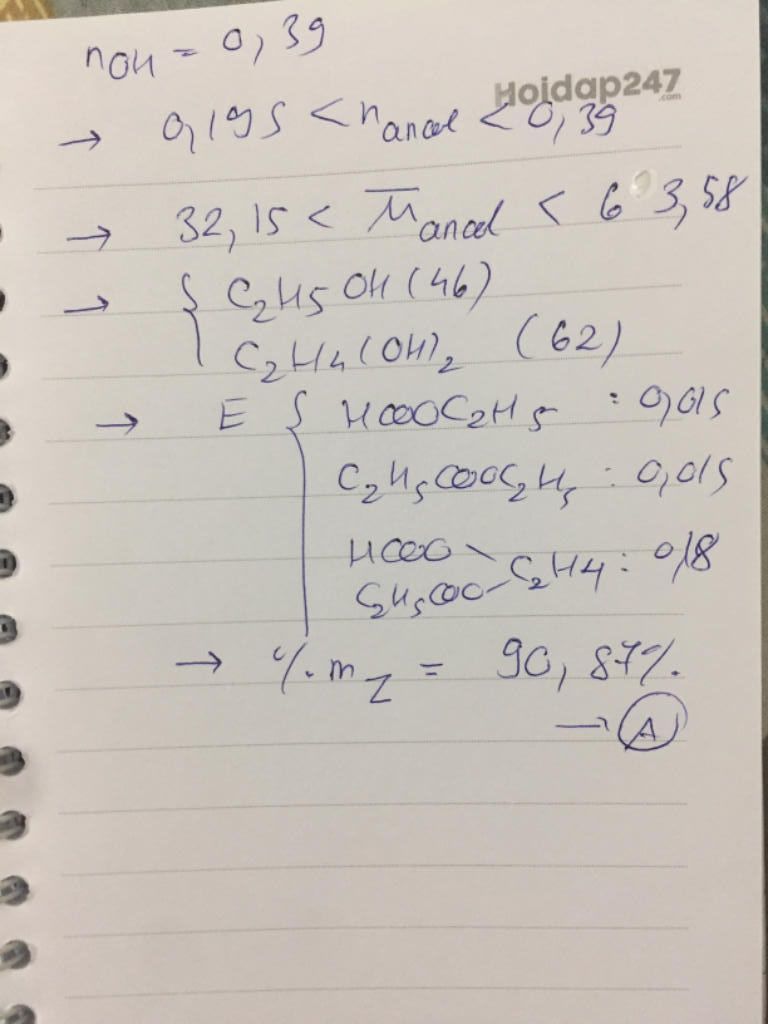 nOH = 0,39
Hoidap247
.com
→ 0,195 < nancol < 0,39
→ 32,15 < M̅ancol < 63,58
→ { C2H5OH (46)
C2H4(OH)2 (62)
→ E { HCOOC2H5 : 0,015
C2H5COOC2H5 : 0,015
HCOO
C2H5COO C2H4 : 0,18
→ %mZ = 90,87%.
→ A